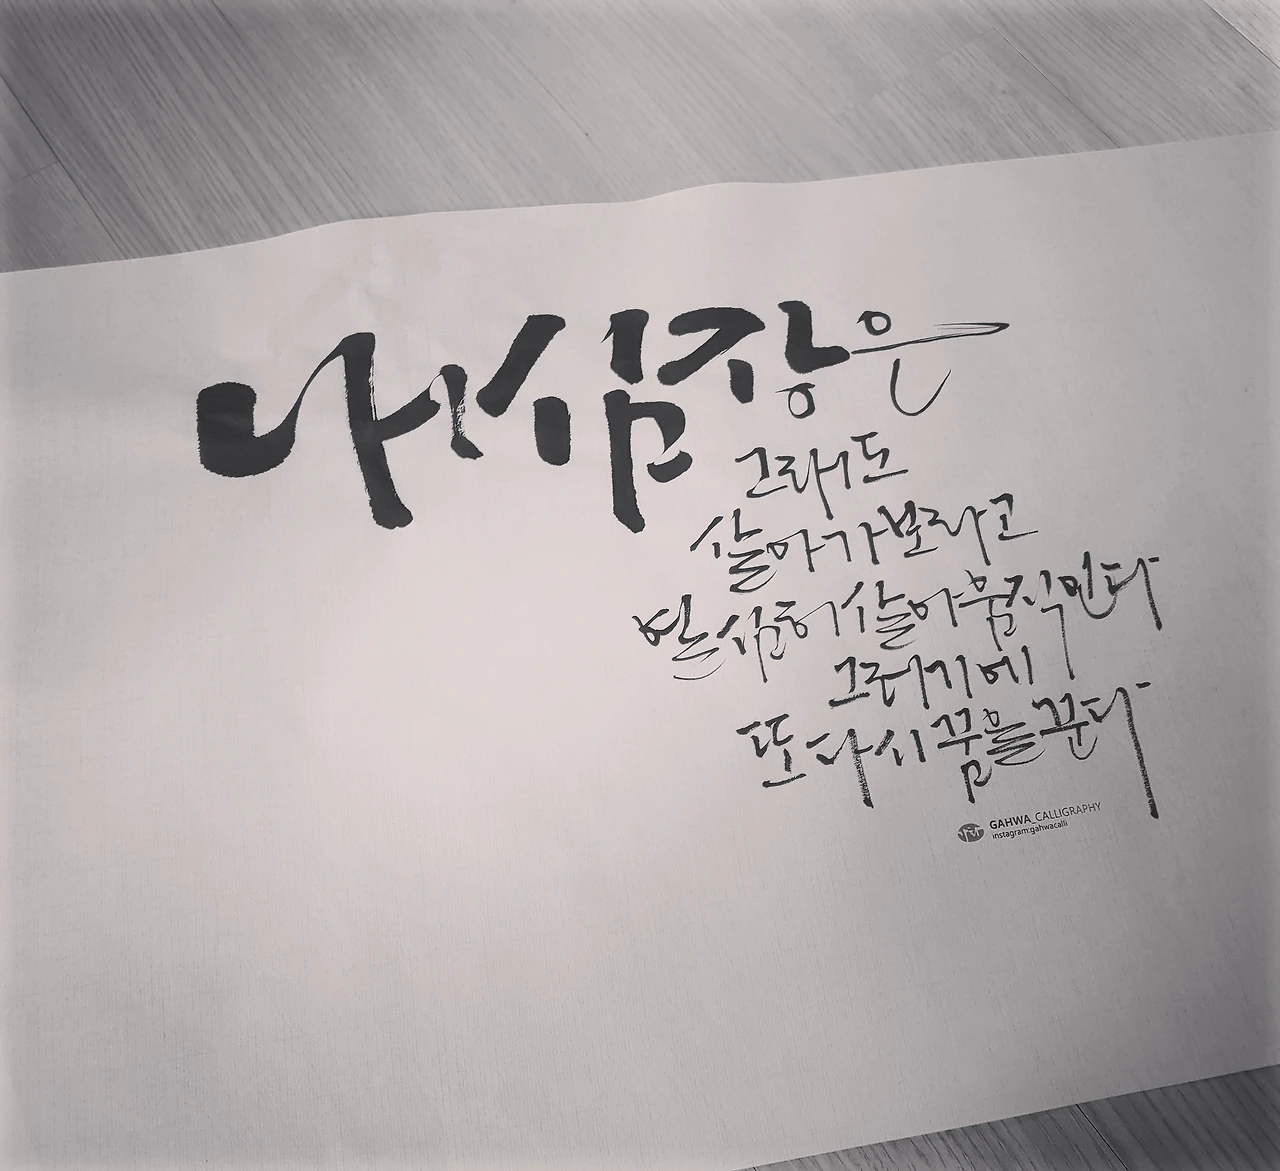 내 심장은
그래도
살아가보라고
열심히 살아 움직인다
그러기에
또 다시 꿈을 꾼다
GAHWA_CALLIGRAPHY
instagram:gahwacalli